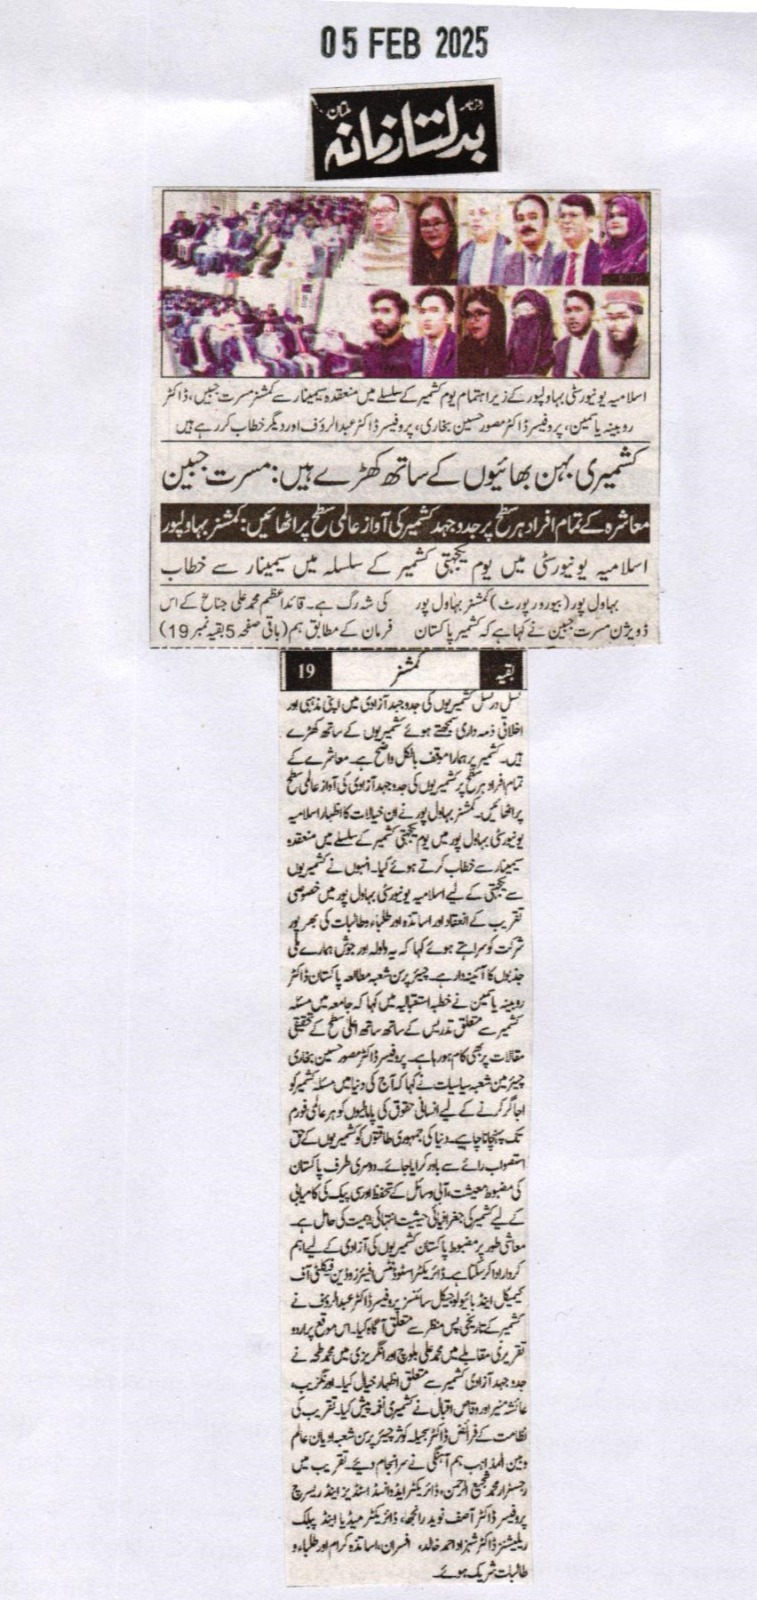 05 FEB 2025
روزنامہ بدلتا زمانہ ملتان
اسلامیہ یونیورسٹی بہاولپور کے زیر اہتمام یوم کشمیر کے سلسلے میں منعقدہ سیمینار سے کمشنر مسرت جبیں، ڈاکٹر
روبینہ یاسمین، پروفیسر ڈاکٹر مصور حسین بخاری، پروفیسر ڈاکٹر عبدالرؤف اور دیگر خطاب کر رہے ہیں
کشمیری بہن بھائیوں کے ساتھ کھڑے ہیں: مسرت جبین
معاشرہ کے تمام افراد ہر سطح پر جدوجہد کشمیر کی آواز عالمی سطح پر اٹھائیں: کمشنر بہاولپور
اسلامیہ یونیورسٹی میں یوم یکجہتی کشمیر کے سلسلہ میں سیمینار سے خطاب
بہاول پور (بیورو رپورٹ) کمشنر بہاول پور
ڈویژن مسرت جبین نے کہا ہے کہ کشمیر پاکستان
کی شہ رگ ہے۔ قائداعظم محمد علی جناح کے اس
فرمان کے مطابق ہم (باقی صفحہ 5 بقیہ نمبر 19)
بقیہ کمشنر 19
نسل در نسل کشمیریوں کی جدوجہد آزادی میں اپنی مذہبی اور
اخلاقی ذمہ داری سمجھتے ہوئے کشمیریوں کے ساتھ کھڑے
ہیں۔ کشمیر پر ہمارا موقف بالکل واضح ہے۔ معاشرے کے
تمام افراد ہر سطح پر کشمیریوں کی جدوجہد آزادی کی آواز عالمی سطح
پر اٹھائیں۔ کمشنر بہاول پور نے ان خیالات کا اظہار اسلامیہ
یونیورسٹی بہاول پور میں یوم یکجہتی کشمیر کے سلسلے میں منعقدہ
سیمینار سے خطاب کرتے ہوئے کیا۔ انہوں نے کشمیریوں
سے یکجہتی کے لیے اسلامیہ یونیورسٹی بہاول پور میں خصوصی
تقریب کے انعقاد اور اساتذہ اور طلباء وطالبات کی بھرپور
شرکت کو سراہتے ہوئے کہا کہ یہ ولولہ اور جوش ہمارے ملی
جذبوں کا آئینہ دار ہے۔ چیئرپرسن شعبہ مطالعہ پاکستان ڈاکٹر
روبینہ یاسمین نے خطبہ استقبالیہ میں کہا کہ جامعہ میں مسئلہ
کشمیر سے متعلق تدریس کے ساتھ ساتھ اعلیٰ سطح کے تحقیقی
مقالات پر بھی کام ہو رہا ہے۔ پروفیسر ڈاکٹر مصور حسین بخاری
چیئرمین شعبہ سیاسیات نے کہا کہ آج کی دنیا میں مسئلہ کشمیر کو
اجاگر کرنے کے لیے انسانی حقوق کی پامالیوں کو ہر عالمی فورم
تک پہنچانا چاہیے۔ دنیا کی جمہوری طاقتوں کو کشمیریوں کے حق
استصواب رائے سے باور کرایا جائے۔ دوسری طرف پاکستان
کی مضبوط معیشت، آبی وسائل کے تحفظ اور سی پیک کی کامیابی
کے لیے کشمیر کی جغرافیائی حیثیت انتہائی اہمیت کی حامل ہے۔
معاشی طور پر مضبوط پاکستان کشمیریوں کی آزادی کے لیے اہم
کردار ادا کر سکتا ہے۔ ڈائریکٹر اسٹوڈنٹس افیئرز و ڈین فیکلٹی آف
کیمیکل اینڈ بائیولوجیکل سائنسز پروفیسر ڈاکٹر عبدالرؤف نے
کشمیر کے تاریخی پس منظر سے متعلق آگاہ کیا۔ اس موقع پر اردو
تقریری مقابلے میں محمد علی بلوچ اور انگریزی میں محمد طحہ نے
جدوجہد آزادی کشمیر سے متعلق اظہار خیال کیا۔ اورنگزیب،
عائشہ منیر اور وقاص اقبال نے کشمیری نغمہ پیش کیا۔ تقریب کی
نظامت کے فرائض ڈاکٹر سجیلہ کوثر چیئرپرسن شعبہ ادیان عالم
و بین المذاہب ہم آہنگی نے سرانجام دیے۔ تقریب میں
رجسٹرار محمد شجیع الرحمن، ڈائریکٹر ایڈوانسڈ اسٹڈیز اینڈ ریسرچ
پروفیسر ڈاکٹر آصف نوید رانجھا، ڈائریکٹر میڈیا اینڈ پبلک
ریلیشنز ڈاکٹر شہزاد احمد خالد، افسران، اساتذہ کرام اور طلباء و
طالبات شریک ہوئے۔